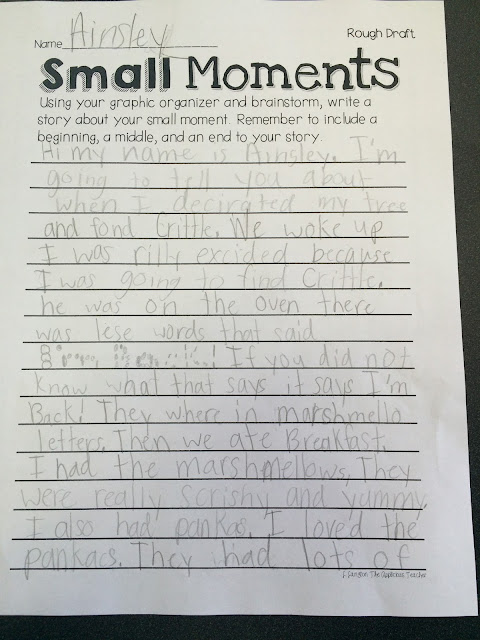 Rough Draft
Name Ainsley
Small Moments
Using your graphic organizer and brainstorm, write a
story about your small moment. Remember to include a
beginning, a middle, and an end to your story.
Hi my name is Ainsley. I'm
going to tell you about
when I decirated my tree
and fond Crittle. We woke up
I was rilly excided because
I was going to find Crittle.
he was on the oven there
was lese words that said
If you did not
know what that says it says I'm
Back! They where in marshmello
letters. Then we ate Breakfast.
I had the marshmellows. They
were really scrishy and yummy.
I also had pankas. I love'd the
pankacs. They had lots of
The Applicious Teacher